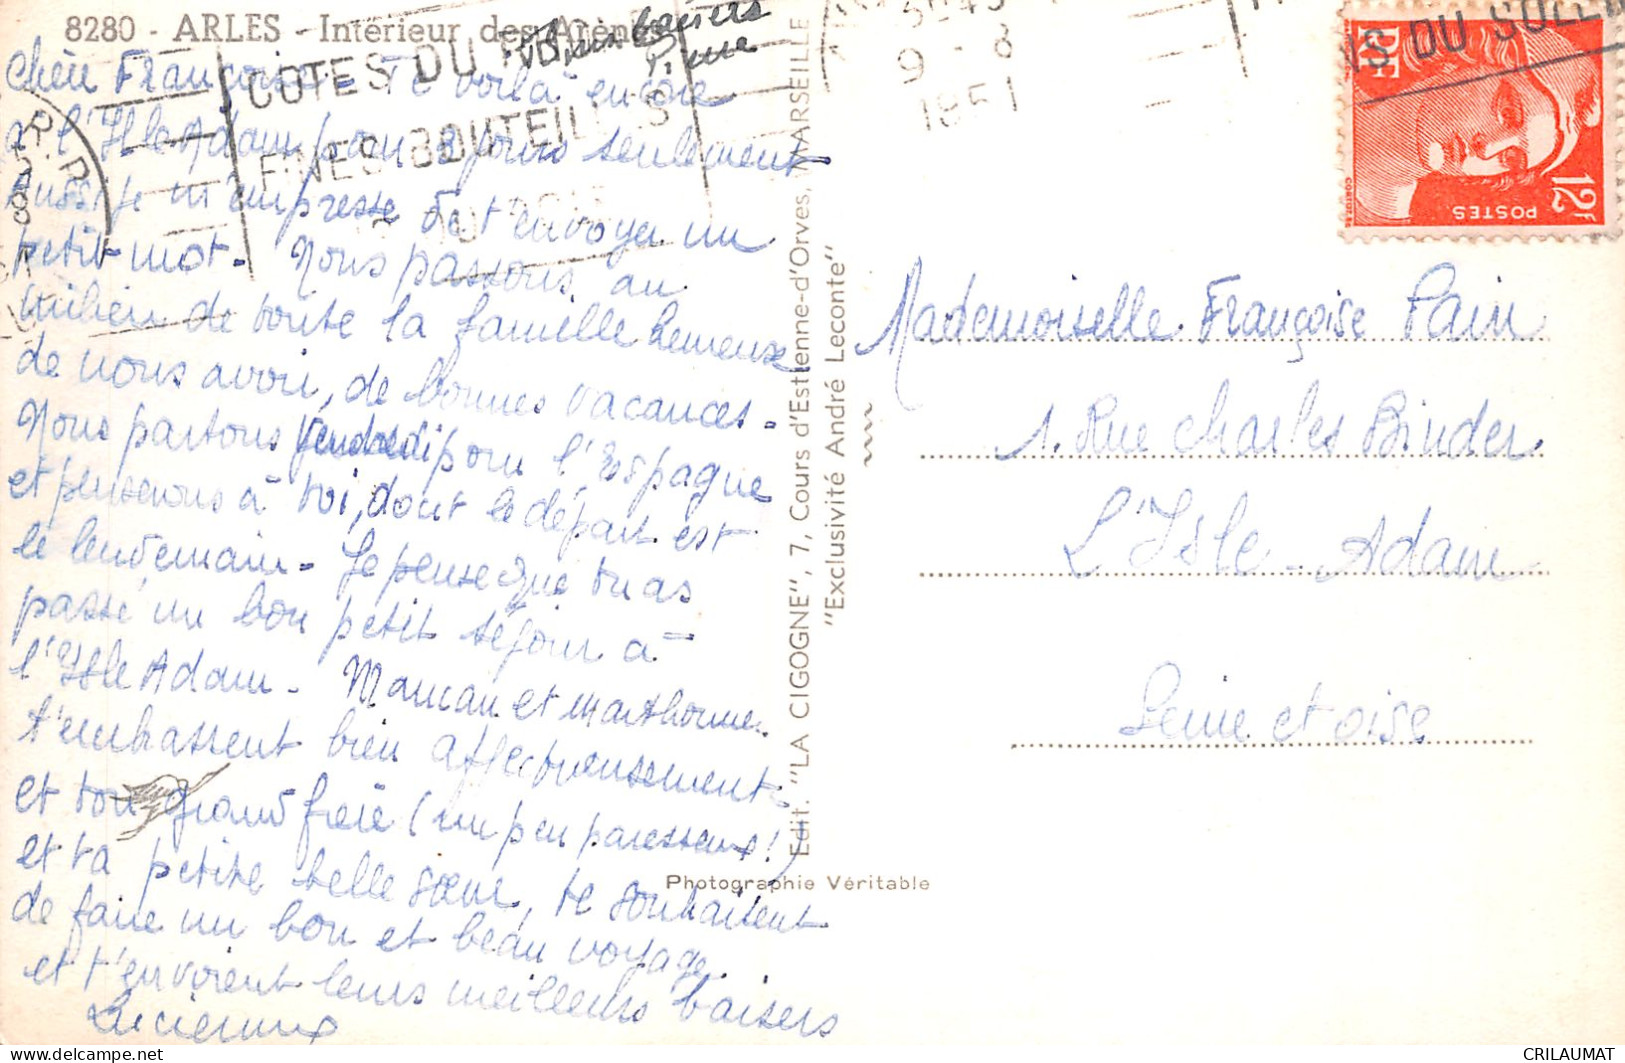 8280 - ARLES - Intérieur des Arènes
Plusieurs baisers
Pierre
Chère Françoise - Te voilà encore
à l'Isle Adam pour 3 jours seulement
Aussi je m'empresse de t'envoyer un
petit mot - Nous passons au
milieu de toute la famille heureuse
de nous avoir, de bonnes vacances -
Nous partons Vendredi pour l'Espagne
et penserons à toi, dont le départ est
le lendemain - Je pense que tu as
passé un bon petit séjour à
l'Isle Adam - Maman et
t'embrassent bien affectueusement
et ton grand frère (un peu paresseux!)
et ta petite belle sœur, te souhaitent
de faire un bon et beau voyage
et t'envoient leurs meilleurs baisers
COTES DU
FINES BOUTEILLES
9 - 8
1951
NS DU SOLEIL
RF
12F
POSTES
Edit. "LA CIGOGNE", 7, Cours d'Estienne-d'Orves, MARSEILLE
"Exclusivité André Leconte"
Photographie Véritable
Mademoiselle Françoise Pain
1. Rue Charles Binder.
L'Isle-Adam
Seine et Oise
delcampe.net
CRILAUMAT